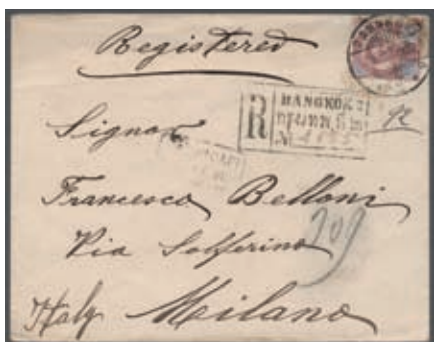 Registered
R BANGKOK 2
Nº
Signor
Francesco Belloni
Via Solferino
209
Italy Milano